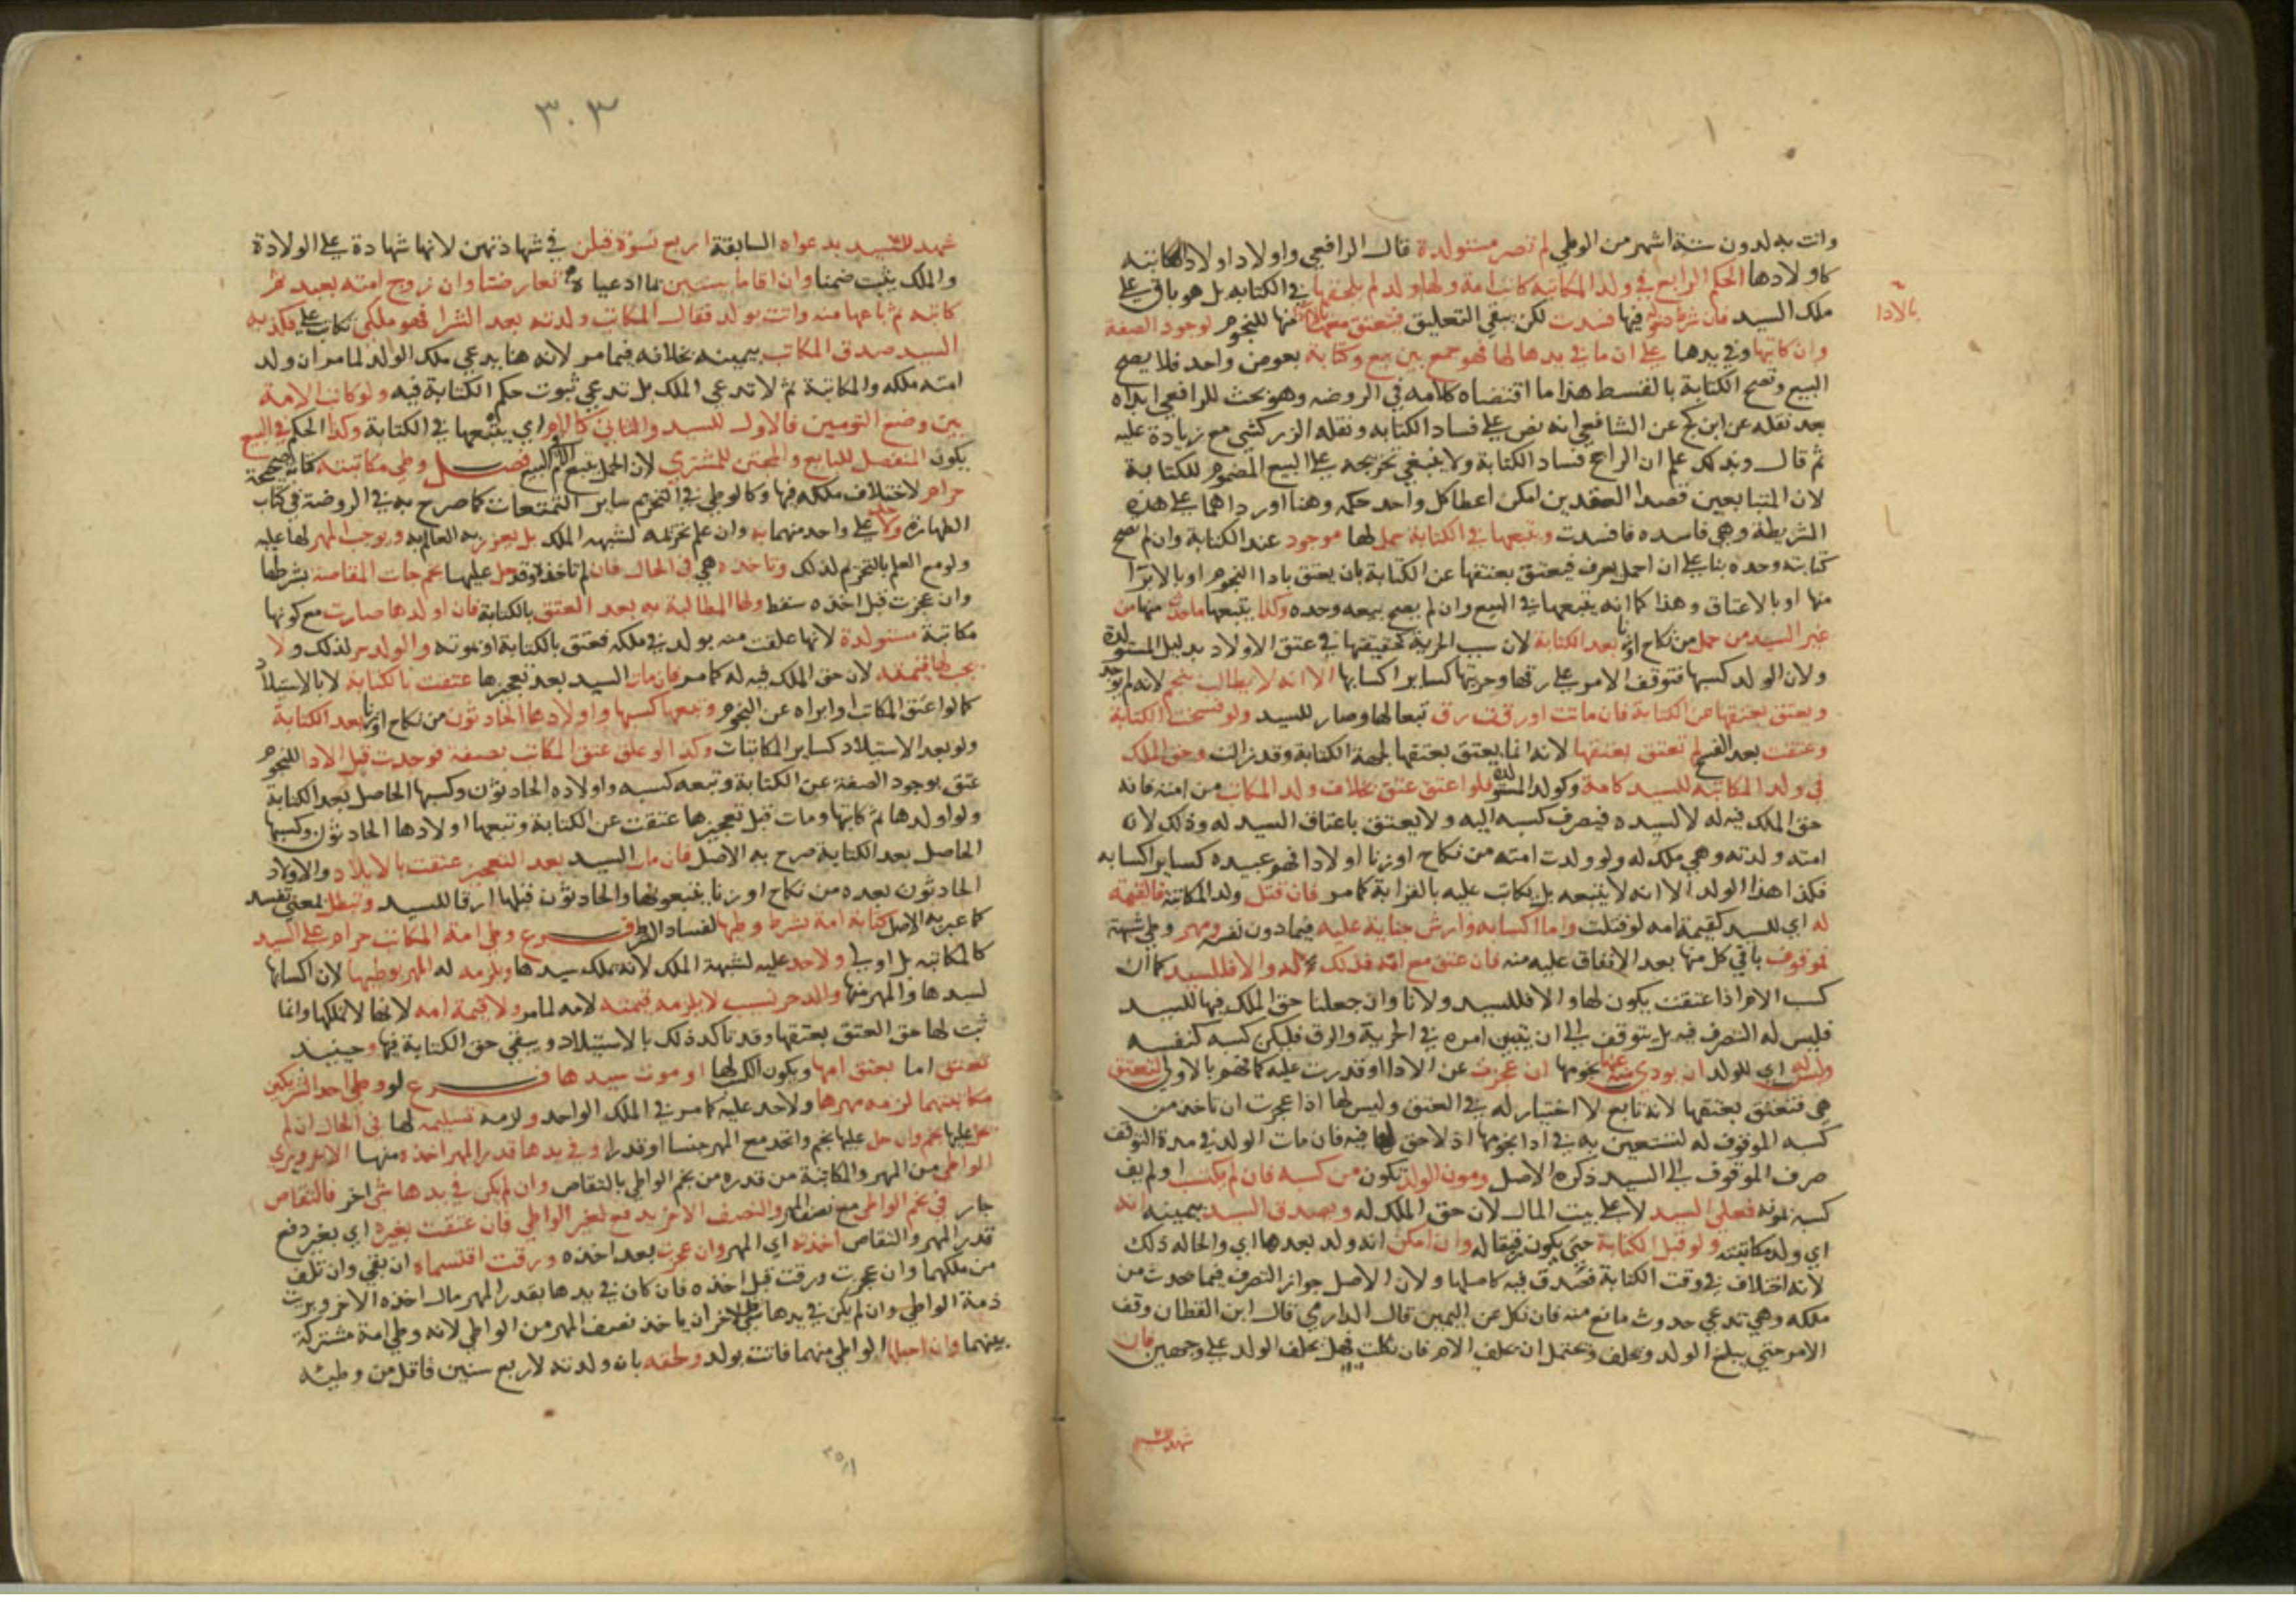 وانت به لدون ستة اشهر من الوطي لم تصر مستولدة قال الرافعي واولاد اولاد المكاتبة
كاولادها الحكم الرابع في ولد المكاتبة كاتب امة ولها ولد لم يلحقها في الكتابه بل هو باق على
ملك السيد فان شرط دخوله فيها فسدت لكن يبقي التعليق فتعتق معها بالادا منها للنجوم لوجود الصفة
بالادا
وان كاتبها وفي يدها على ان ما في يدها لها فهو جمع بين بيع وكتابة بعوض واحد فلا يصح
البيع وتصح الكتابة بالقسط هذا ما اقتضاه كلامه في الروضه وهو بحث للرافعي ابداه
بعد نقله عن ابن كج عن الشافعي انه نص على فساد الكتابه ونقله الزركشي مع زيادة عليه
ثم قال وبذلك علم ان الراجح فساد الكتابة ولا ينبغي تخريجه على البيع المضموم للكتابة
لان المتبايعين قصدا العقدين امكن اعطا كل واحد حكمه وهنا اورداهما على هذه
الشريطة وهي فاسده فافسدت ويتبعها في الكتابة حمل لها موجود عند الكتابة وان لم تصح
كتابته وحده بنا على ان الحمل يعرف فيعتق بعتقها عن الكتابة بان يعتق بادا النجوم او بالابرا
منها او بالاعتاق وهذا كما انه يتبعها في البيع وان لم يصح بيعه وحده وكذا يتبعها ما حدث منها من
غير السيد من حمل من نكاح او زنا بعد الكتابة لان سبب الحرية كحقيقتها في عتق الاولاد بدليل المستولدة
ولان الولد كسبها فتوقف الامر على رقها وحريتها كساير اكسابها الا انه لا يطالب بنجم لانه لم يوجد
ويعتق بعتقها عن الكتابة فان ماتت او رقت رق تبعا لها وصار للسيد ولو فسخت الكتابة
وعتقت بعد الفسخ لم تعتق بعتقها لانه انما يعتق بعتقها لجهة الكتابة وقد زالت وحق الملك
في ولد المكاتبة للسيد كامه وكولد المستولدة فلو اعتق عتق بخلاف ولد المكاتب من امته فانه
حق الملك فيه له لا لسيده فيصرف كسبه اليه ولا يعتق باعتاق السيد له وذلك لان
امته ولدته وهي ملك له ولو ولدت امته من نكاح او زنا اولادا فهم عبيده كساير اكسابه
فكذا هذا الولد الا انه لا يتبعه بل يكاتب عليه بالقرابة كما مر فان قتل ولد المكاتبة فالقيمة
له اي للسيد كقيمة امه لو قتلت واما اكسابه وارش جناية عليه فيما دون نفسه ومهر وطي شبهة
فموقوف باقي كل منها بعد الانفاق عليه منه فان عتق مع امه فذلك له والا فللسيد كما ان
كسب الام اذا عتقت يكون لها والا فللسيد ولانا وان جعلنا حق الملك فيها للسيد
فليس له التصرف فيه بل يتوقف الى ان يتبين امره في الحرية والرق فليكن كسبه كنفسه
وليس له اي للولد ان يودي عنها نجومها ان عجزت عن الادا او قدرت عليه كما فهم بالاولى لتعتق
هي فتعتق بعتقها لانه تابع لا اختيار له في العتق وليس لها اذا عجزت ان تاخذ من
كسبه الموقوف له لتستعين به في ادا نجومها اذ لا حق لها فيه فان مات الولد في مدة التوقف
صرف الموقوف الى السيد ذكره الاصل ومون الولد تكون من كسبه فان لم يكتسب او لم يف
كسبه بمونه فعلى السيد لا على بيت المال لان حق الملك له ويصدق السيد بيمينه انه
اي ولد مكاتبته ولد قبل الكتابة حتى يكون رقيقا له وان امكن انه ولد بعدها اي والحاله ذلك
لانه اختلاف في وقت الكتابة فصدق فيه كاصلها ولان الاصل جواز التصرف فيما حدث من
ملكه وهي تدعي حدوث مانع منه فان نكل عن اليمين قال الدارمي قال ابن القطان وقف
الامر حتى يبلغ الولد ويحلف ويحتمل ان يحلف الام فان نكلت فهل يحلف الولد على وجهين فان
شهد للسيد
٣٠٣
شهد للسيد بدعواه السابقة اربع نسوة قبلن في شهادتهن لانها شهادة على الولادة
والملك يثبت ضمنا وان اقاما بينتين بما ادعياه تعارضتا وان زوج امته بعبد ثم
كاتبه ثم باعها منه واتت بولد فقال المكاتب ولدته بعد الشرا فهو ملكي تكاتب على فكذبه
السيد صدق المكاتب بيمينه بخلافه فيما مر لانه هنا يدعي ملك الولد لما مر ان ولد
امته ملكه والمكاتبة ثم لا تدعي الملك بل تدعي ثبوت حكم الكتابة فيه ولو كاتب الامة
بين وضع التومين فالاول للسيد والثاني كالام اي يتبعها في الكتابة وكذا الحكم في البيع
يكون المنفصل للبايع والمجتن للمشتري لان الحمل يتبع الام في البيع فصل وطي مكاتبته كتابة صحيحة
حرام لاختلاف ملكه فيها وكالوطي في التحريم ساير التمتعات كما صرح به في الروضة في كتاب
الظهار ولا حد على واحد منهما به وان علم تحريمه لشبهة الملك بل يعزر به العالم به ويوجب المهر لها عليه
ولو مع العلم بالتحريم لذلك وتاخذه هي في الحال فان لم تاخذه وقد حل عليها نجم جات المقاصة بشرطها
وان عجزت قبل اخذه سقط ولها المطالبة به بعد العتق بالكتابة فان اولدها صارت مع كونها
مكاتبة مستولدة لانها علقت منه بولد في ملكه فتعتق بالكتابة او بموته والولد حر لذلك ولا
يجب لها قيمته لان حق الملك فيه له كما مر فان مات السيد بعد تعجيزها عتقت بالكتابة لا بالاستيلاد
كما لو اعتق المكاتب او ابراه عن النجوم وتبعها كسبها واولادها الحادثون من نكاح او زنا بعد الكتابة
ولو بعد الاستيلاد كساير المكاتبات وكذا لو علق عتق المكاتب بصفة فوجدت قبل الادا للنجوم
عتق بوجود الصفة عن الكتابة وتبعه كسبه واولاده الحادثون وكسبها الحاصل بعد الكتابة
ولو اولدها ثم كاتبها ومات قبل تعجيزها عتقت عن الكتابة وتبعها اولادها الحادثون وكسبها
الحاصل بعد الكتابة صرح به الاصل فان مات السيد بعد التعجيز عتقت بالايلاد والاولاد
الحادثون بعده من نكاح او زنا يتبعونها والحادثون قبلها ارقا للسيد وتبطل بمعنى تفسد
كما عبر به الاصل كتابة امة بشرط وطيها لفساد الشرط فرع وطي امة المكاتب حرام على السيد
كالمكاتبه بل اولى ولا حد عليه لشبهة الملك لانه يملك سيدها ويلزمه له المهر بوطيها لان اكسابها
لسيدها والمهر منها والولد حر نسيب لا يلزمه قيمته لامه لما مر ولا قيمة امه لانها لا تملكها وانما
ثبت لها حق العتق بعتقها وقد تاكد ذلك بالاستيلاد ويبقي حق الكتابة فيها وحينيذ
تعتق اما بعتق امها ويكون الكسب لها او موت سيدها فرع لو وطي احد الشريكين
مكاتبتهما لزمه مهرها ولا حد عليه كما مر في الملك الواحد ولزمه تسليمه لها في الحال ان لم
يحل عليها نجم وان حل عليها نجم واتحد مع المهر جنسا وقدرا وفي يدها قدر المهر اخذه منها الاخر وبري
الواطي من المهر والمكاتبة من قدره من نجم الواطي بالتقاص وان لم يكن في يدها شي اخر فالتقاص
جار في نجم الواطي مع نصف المهر والنصف الاخر يدفع لغير الواطي فان عتقت بغيره اي بغير دفع
قدر المهر والتقاص اخذته اي المهر وان عجزت بعد اخذه ورقت اقتسماه ان بقي وان تلف
من ملكهما وان عجزت ورقت قبل اخذه فان كان في يدها بقدر المهر مال اخذه الاخر وبريت
ذمة الواطي وان لم يكن في يدها شي فللاخر ان ياخذ نصف المهر من الواطي لانه وطي امة مشتركة
بينهما وان احبلها الواطي منهما فاتت بولد ولحقه بان ولدته لاربع سنين فاقل من وطيئه